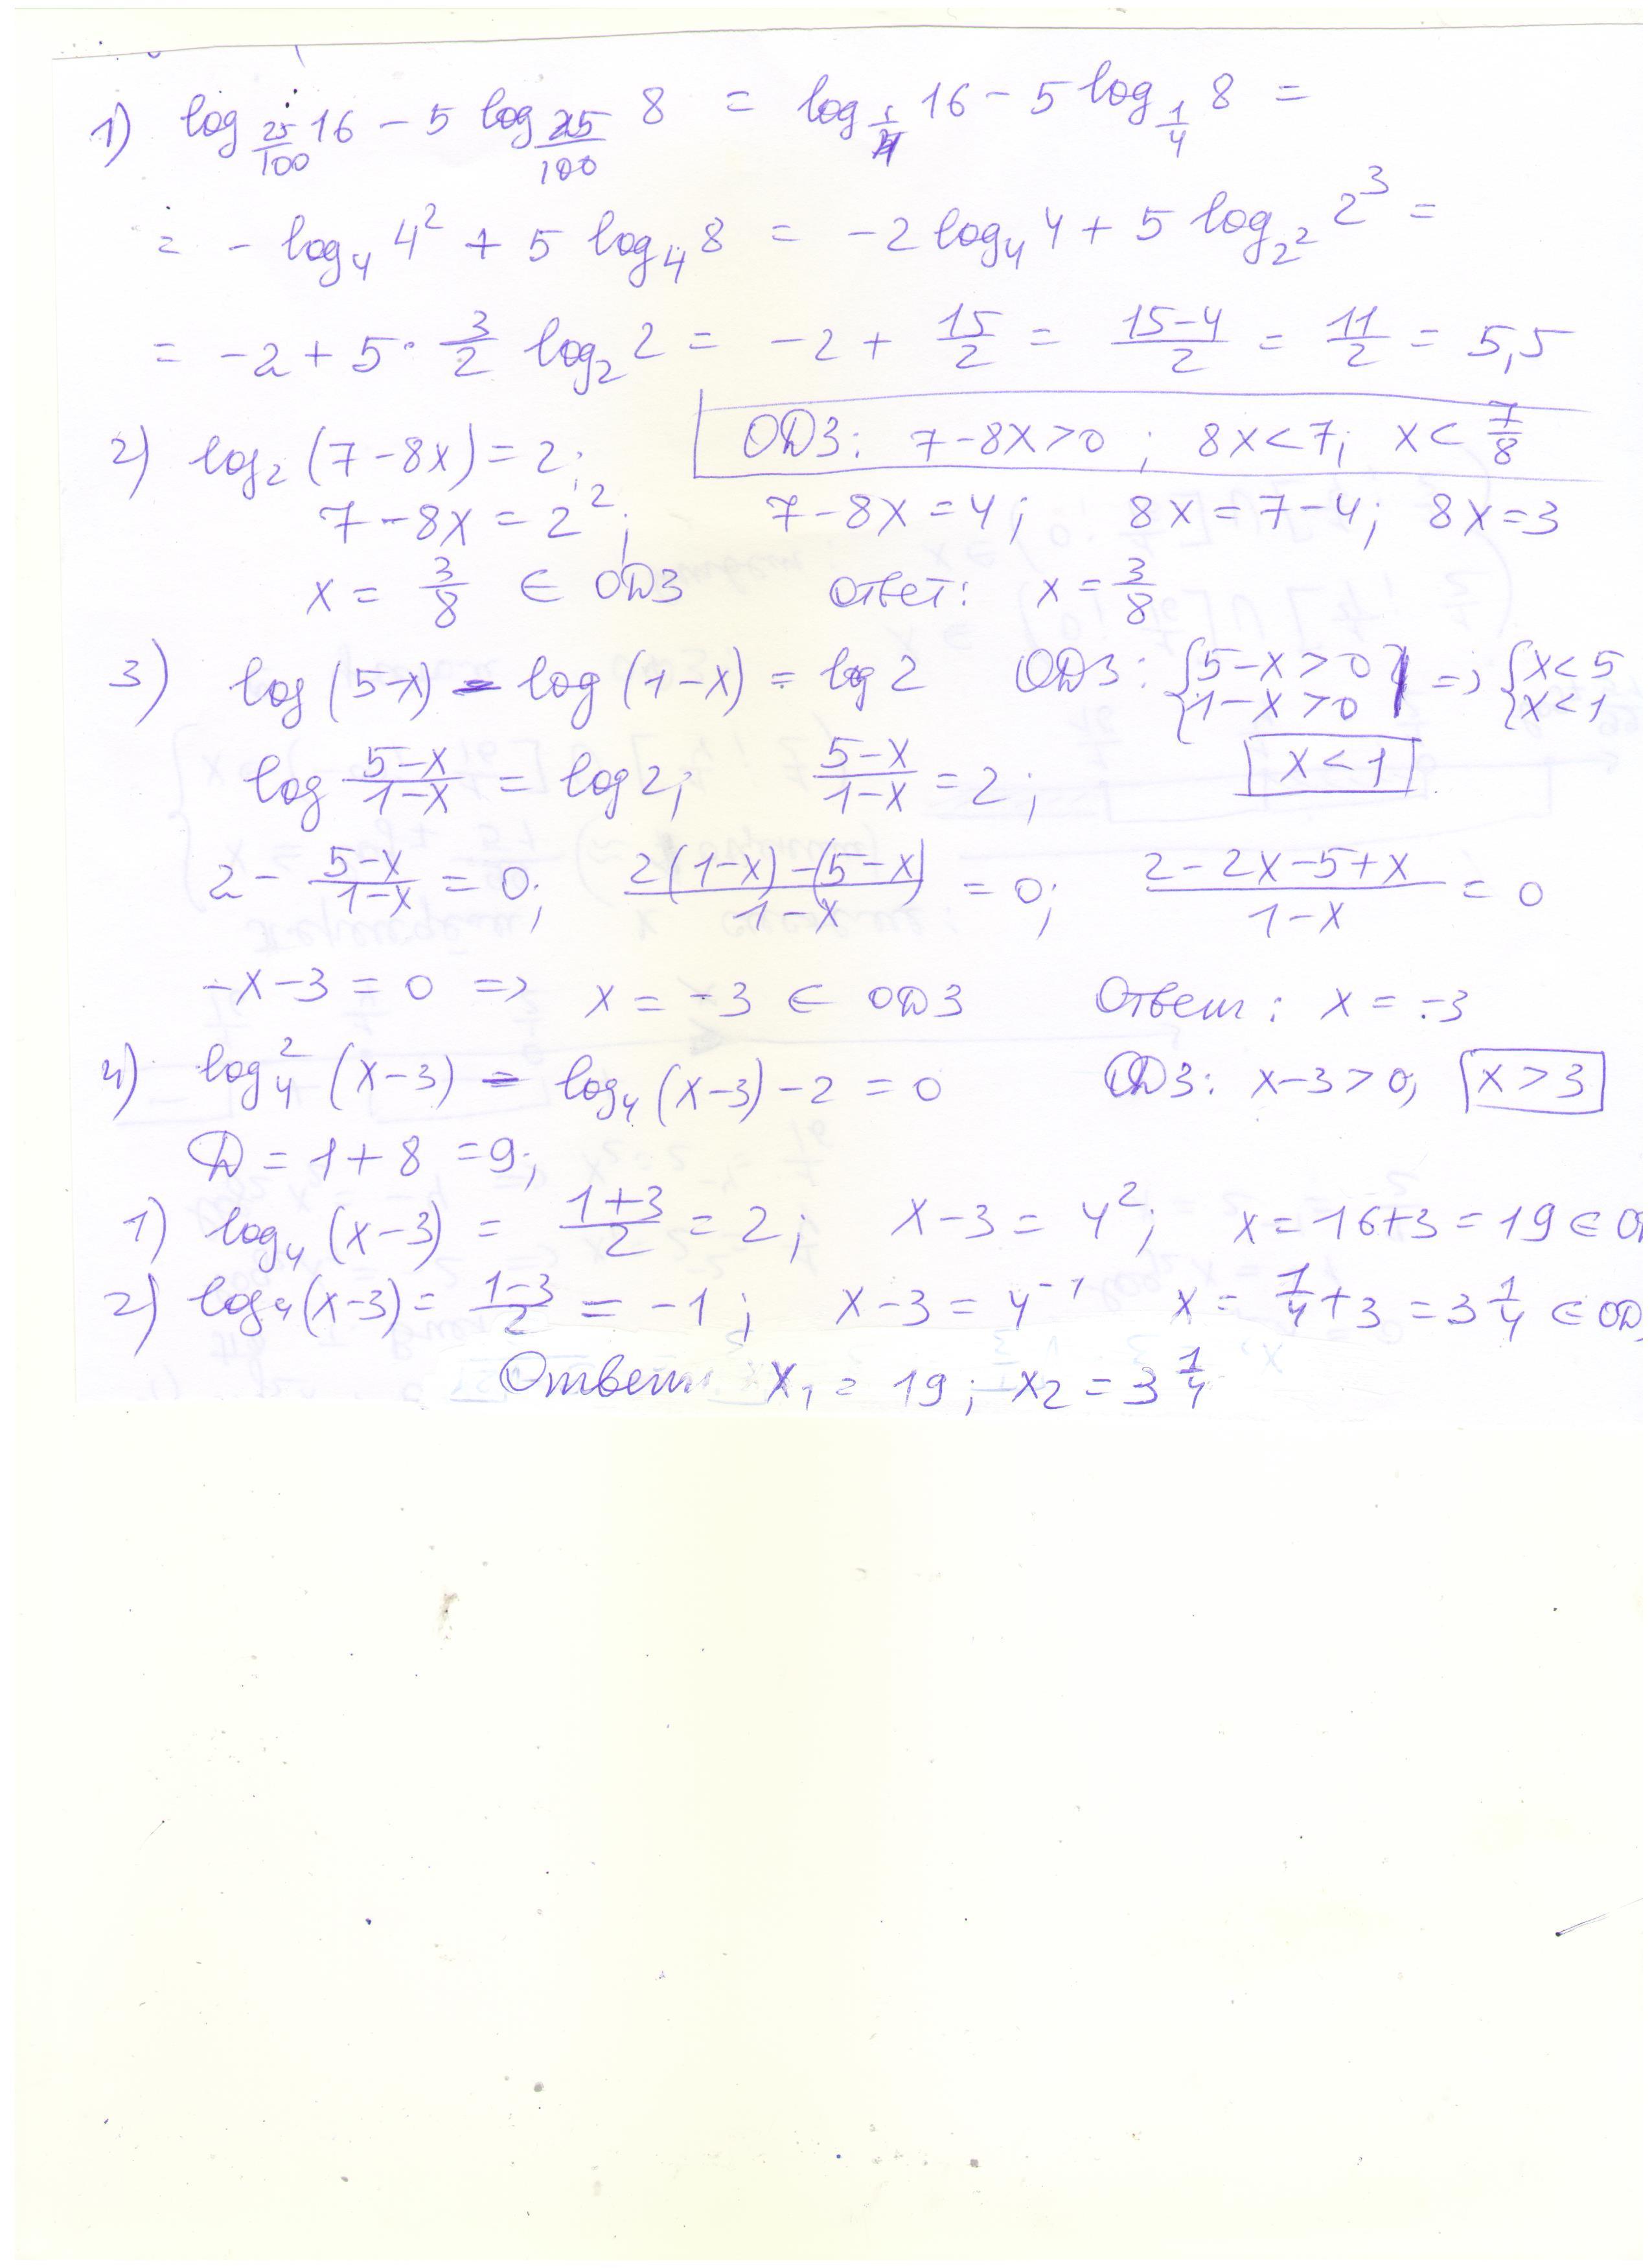 1) log_{25/100} 16 - 5 log_{25/100} 8 = log_{1/4} 16 - 5 log_{1/4} 8 =
= - log_4 4^2 + 5 log_4 8 = -2 log_4 4 + 5 log_{2^2} 2^3 =
= -2 + 5 · 3/2 log_2 2 = -2 + 15/2 = (15-4)/2 = 11/2 = 5,5
2) log_2 (7-8x) = 2; ОДЗ: 7-8x>0; 8x<7; x< 7/8
7-8x = 2^2; 7-8x = 4; 8x = 7-4; 8x = 3
x = 3/8 ∈ ОДЗ Ответ: x = 3/8
3) log (5-x) - log (1-x) = log 2 ОДЗ: {5-x>0 {1-x>0 => {x<5 {x<1
log (5-x)/(1-x) = log 2; (5-x)/(1-x) = 2; x<1
2 - (5-x)/(1-x) = 0; (2(1-x)-(5-x))/(1-x) = 0; (2-2x-5+x)/(1-x) = 0
-x-3 = 0 => x = -3 ∈ ОДЗ Ответ: x = -3
4) log_4^2 (x-3) - log_4 (x-3) - 2 = 0 ОДЗ: x-3>0; x>3
D = 1+8 = 9;
1) log_4 (x-3) = (1+3)/2 = 2; x-3 = 4^2; x = 16+3 = 19 ∈ О
2) log_4 (x-3) = (1-3)/2 = -1; x-3 = 4^{-1} x = 1/4 + 3 = 3 1/4 ∈ ОД
Ответ: x_1 = 19; x_2 = 3 1/4